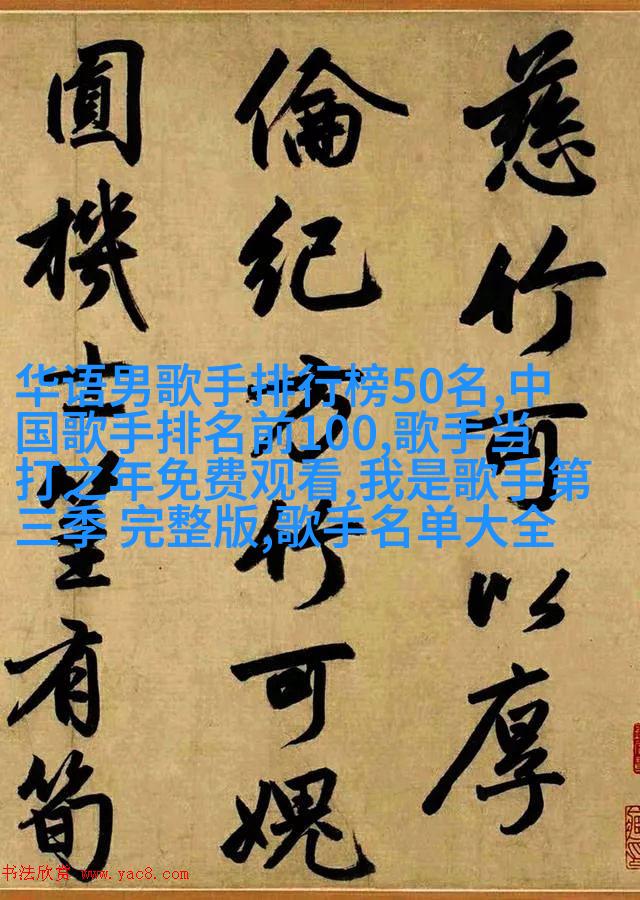 慈竹可以厚
倫紀方竹可媿
圓機士筀有筍
华语男歌手排行榜50名,中
国歌手排名前100,歌手当
打之年免费观看,我是歌手第
三季 完整版,歌手名单大全
书法欣赏 www.yac8.com